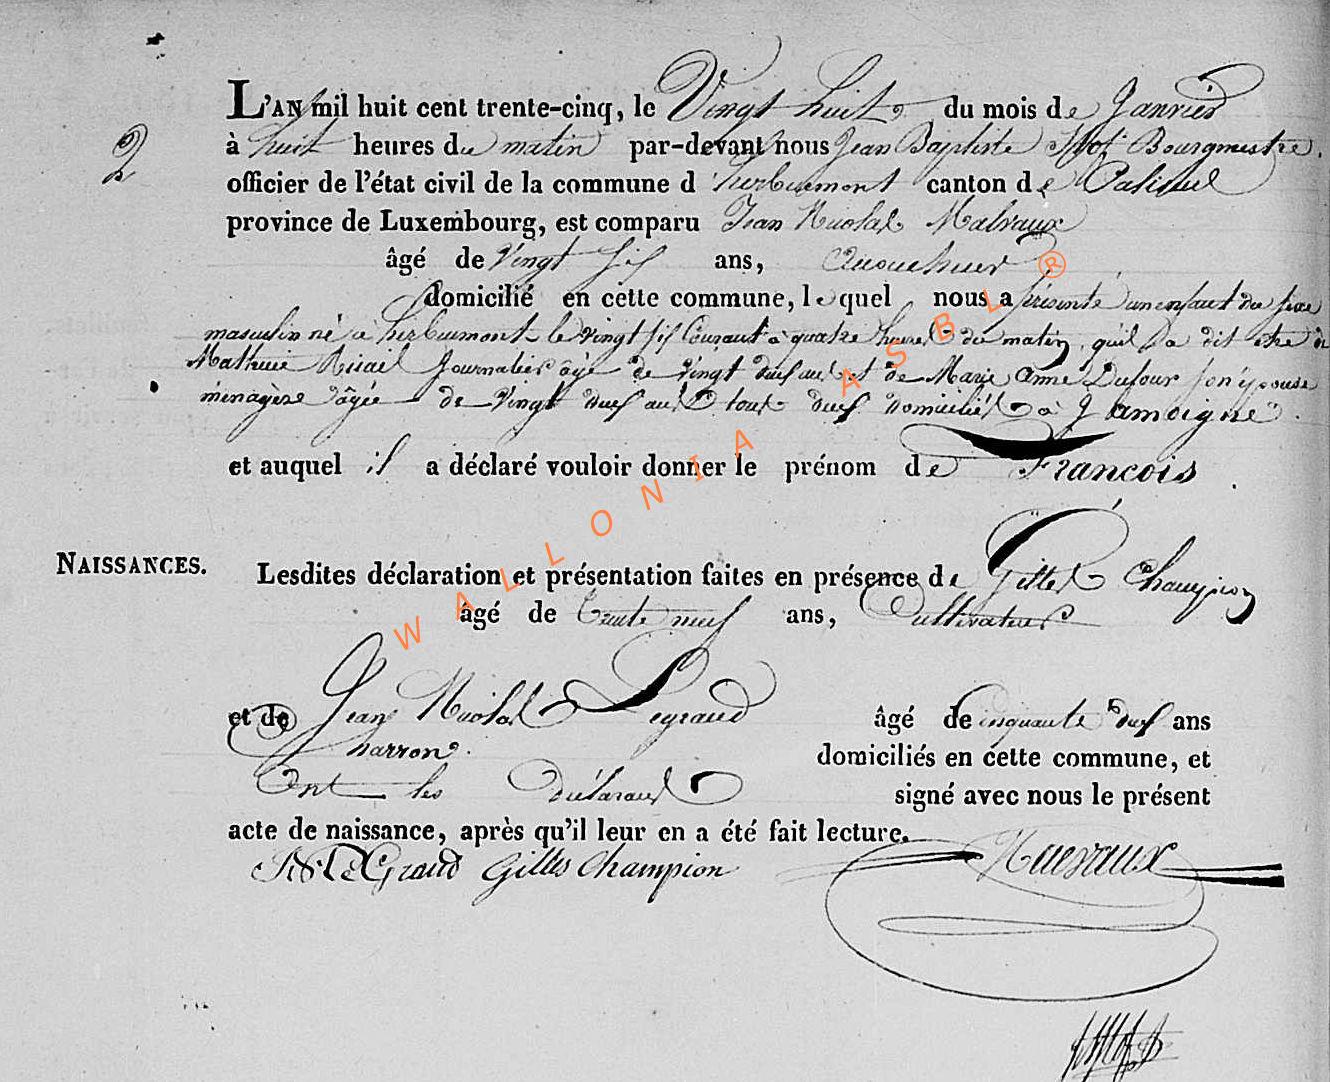 L'AN mil huit cent trente-cinq, le Vingt huit du mois de Janvier
2
à huit heures du matin par-devant nous Jean Baptiste Bourgmestre
officier de l'état civil de la commune d'herbeumont canton de Paliseul
province de Luxembourg, est comparu Jean Nicolas
âgé de Vingt six ans,
domicilié en cette commune, lequel nous a présenté un enfant du sexe
masculin né à herbeumont le vingt six Courant à quatre heures du matin, qu'il a dit etre de
Mathieu Journalier âgé de vingt deux ans et de Marie Anne Dufour son épouse
ménagère âgée de Vingt deux ans tous deux domiciliés à Jamoigne.
et auquel il a déclaré vouloir donner le prénom de Francois
NAISSANCES.
Lesdites déclaration et présentation faites en présence de Gilles Champion
âgé de trente neuf ans, Cultivateur
et de Jean Nicolas Legrand âgé de cinquante deux ans
charron. domiciliés en cette commune, et
Ont les déclarans signé avec nous le présent
acte de naissance, après qu'il leur en a été fait lecture.
LeGrand Gilles Champion
WALLONIA ASBL ®